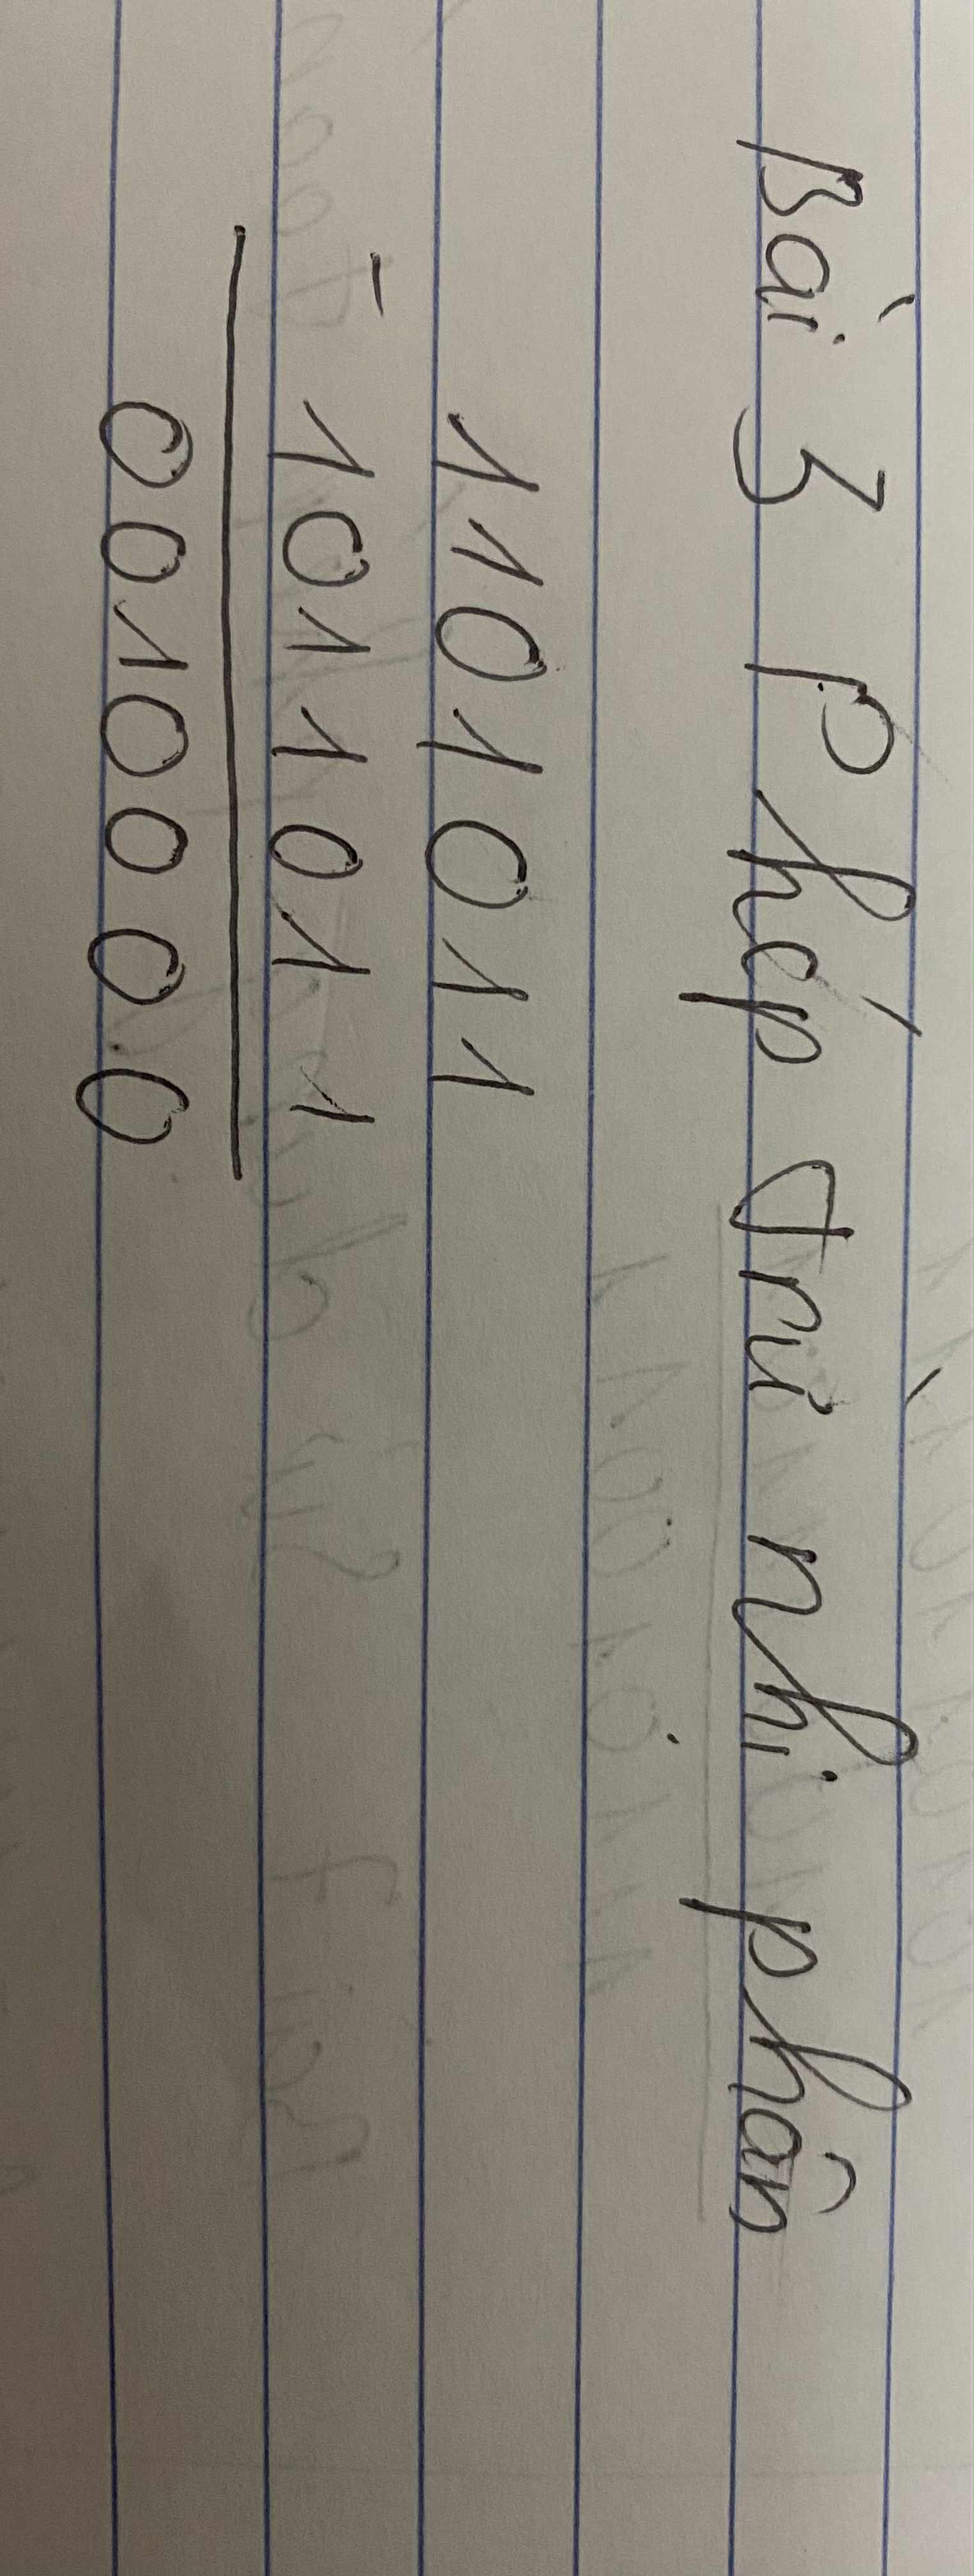 Bài 3 Phép trừ nhị phân
1101011
- 1011011
0010000